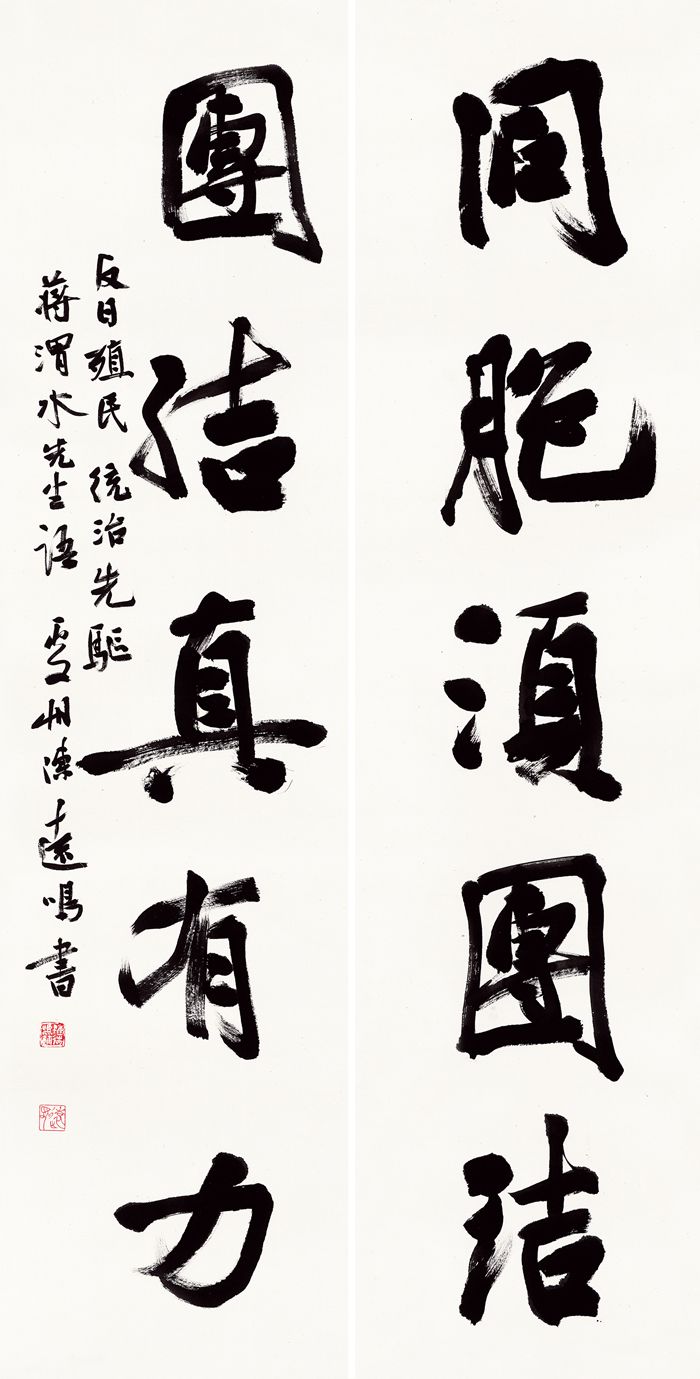 同胞須團結
團結真有力
反日殖民統治先驅
蔣渭水先生語 雯州陳遠鳴書